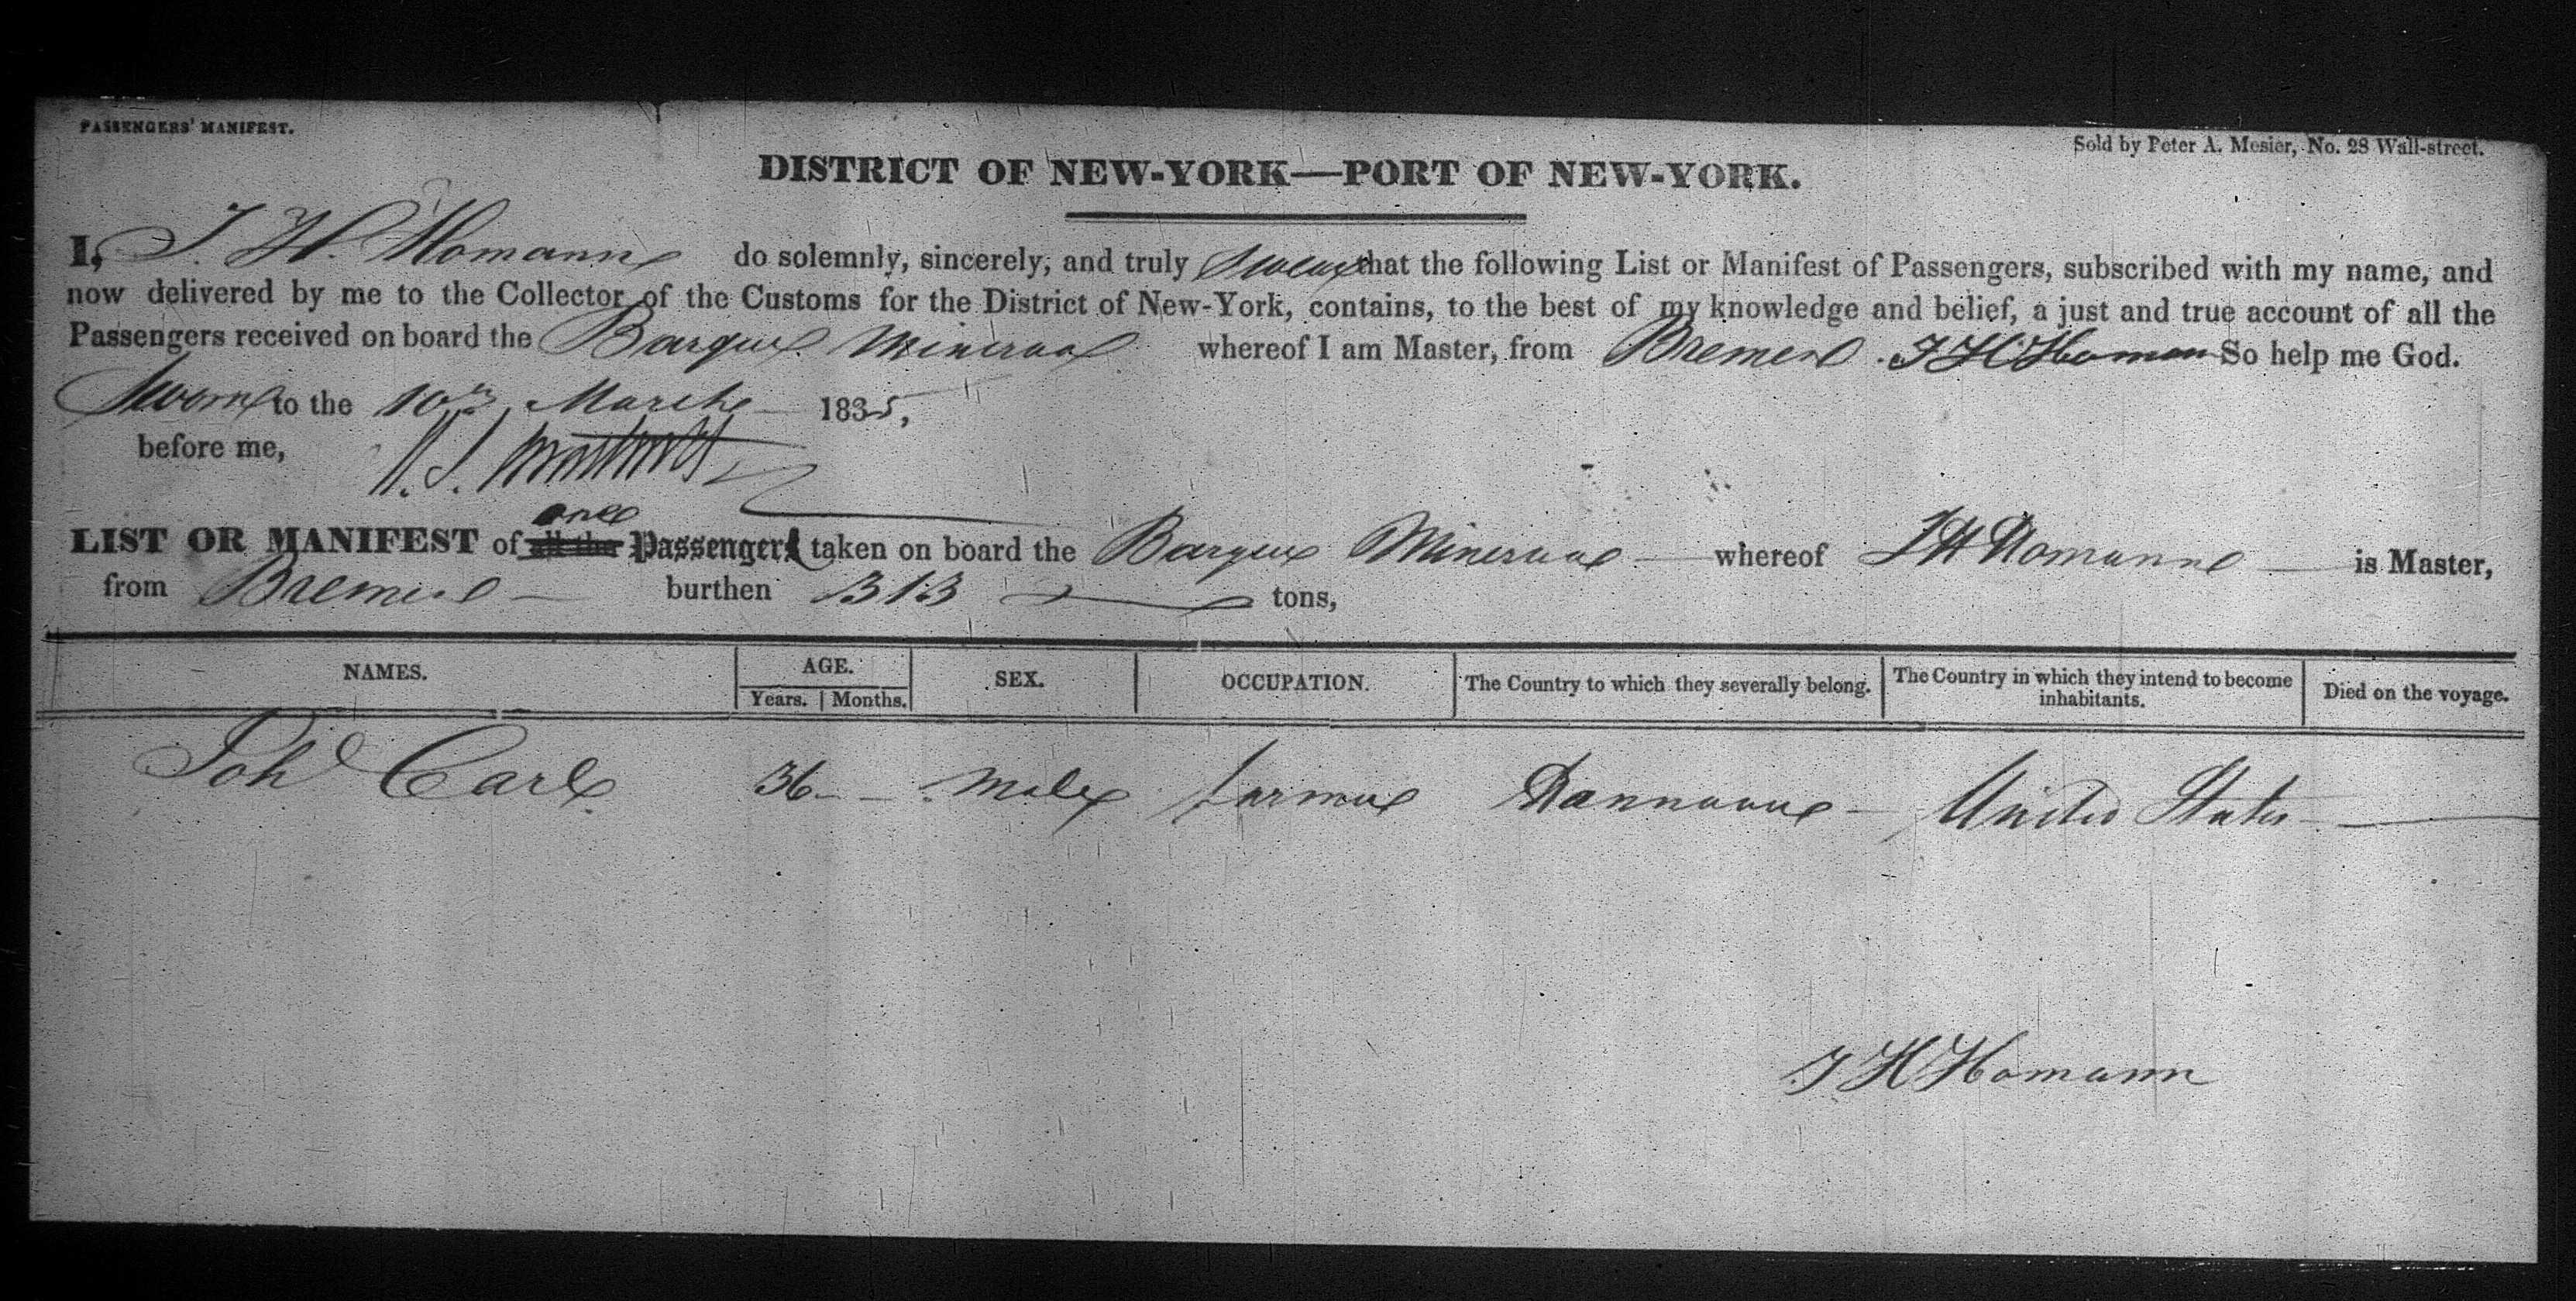 PASSENGERS' MANIFEST.
Sold by Peter A. Mesier, No. 28 Wall-street.
DISTRICT OF NEW-YORK—PORT OF NEW-YORK.
I, J. H. Homann do solemnly, sincerely, and truly Swear that the following List or Manifest of Passengers, subscribed with my name, and
now delivered by me to the Collector of the Customs for the District of New-York, contains, to the best of my knowledge and belief, a just and true account of all the
Passengers received on board the Barque Minerva whereof I am Master, from Bremen J H Homann So help me God.
Sworn to the 10th March 1835,
before me,
one
LIST OR MANIFEST of all the Passenger taken on board the Barque Minerva whereof J H Homann is Master,
from Bremen burthen 313 tons,
NAMES. AGE. SEX. OCCUPATION. The Country to which they severally belong. The Country in which they intend to become inhabitants. Died on the voyage.
Years. Months.
Joh Carl 36 Male farmer United States
J H Homann